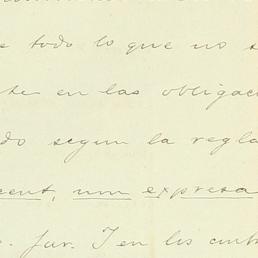 s todo lo que no s
te en las obligac
do segun la regla
cent, num expresa
. Jur. I en los cuat